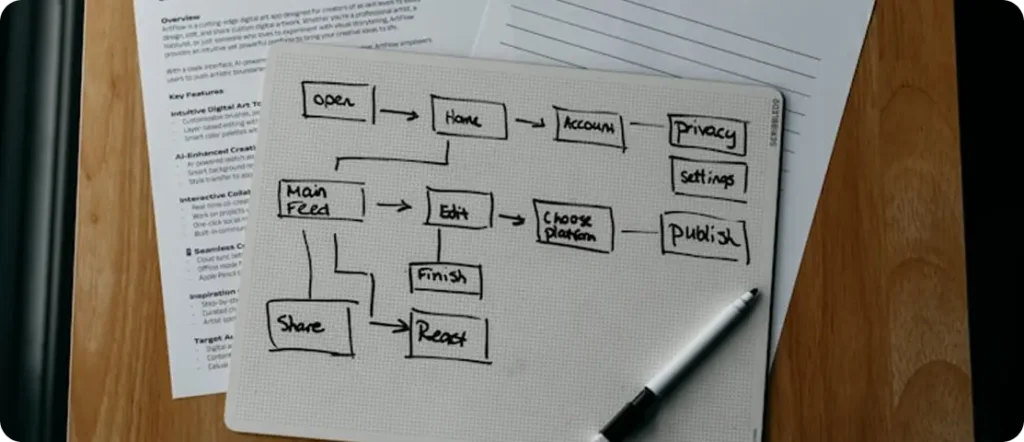 Overview
ArtFlow is a cutting-edge digital art app designed for creators of all skill levels to
design, edit, and share custom digital artwork. Whether you're a professional artist, a
hobbyist, or just someone who loves to experiment with visual storytelling, ArtFlow
provides an intuitive yet powerful platform to bring your creative ideas to life.
With a sleek interface, AI-power ArtFlow empowers
users to push artistic boundar
Key Features:
Intuitive Digital Art To
- Customizable brushes,
- Layer-based editing with
- Smart color palettes
AI-Enhanced Creati
- AI-powered sketch
- Smart background
- Style transfer to
Interactive Collab
- Real-time
- Work on projects
- One-click social
- Built-in
Seamless C
- Cloud sync
- Offline mode
- Apple Pencil
Inspiration
- Step-by-st
- Curated
- Artist
Target Au
- Digital
- Casual
open
Home
Account
privacy
settings
Main
Feed
Edit
Choose
platform
publish
Finish
Share
React